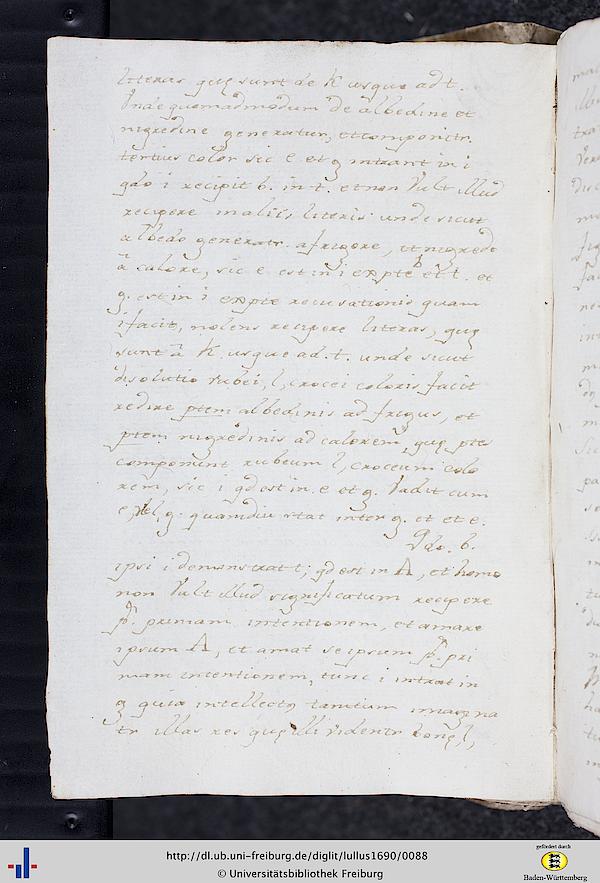 literas quę sunt de K usque ad t.
Unde quemadmodum de albedine et
nigredine generatur, et componitr.
tertius color sic e et g intrant in i
qdo i recipit b. in t. et non Vult illud
recipere in aliis literis unde sicut
albedo generatr. a frigore, et nigredo
à calore, sic e est in i ex pte et t. et
g. est in i ex pte recusationis quam
i facit, nolens recipere literas, quę
sunt à K. usque ad. t. unde sicut
disolutio rubei, l, crocei coloris facit
redire ptem albedinis ad frigus, et
ptem nigredinis ad calorem, quę ptes
componunt rubeum l, croceum colo
rem, sic i qd est in. e et g. Vadit cum
e, vel, g. quamdiu stat inter g. et et e.
Qdo. b.
ipsi i demonstrat t; qd est in A, et homo
non Vult illud significatum recipere
p. primam intentionem, et amare
ipsum A, et amat se ipsum p. pri
mam intentionem, tunc i intrat in
g quia intellectq tantum imagina
tr illas res quę illi videntr bonę, l,
http://dl.ub.uni-freiburg.de/diglit/lullus1690/0088
© Universitätsbibliothek Freiburg
gefördert durch
Baden-Württemberg